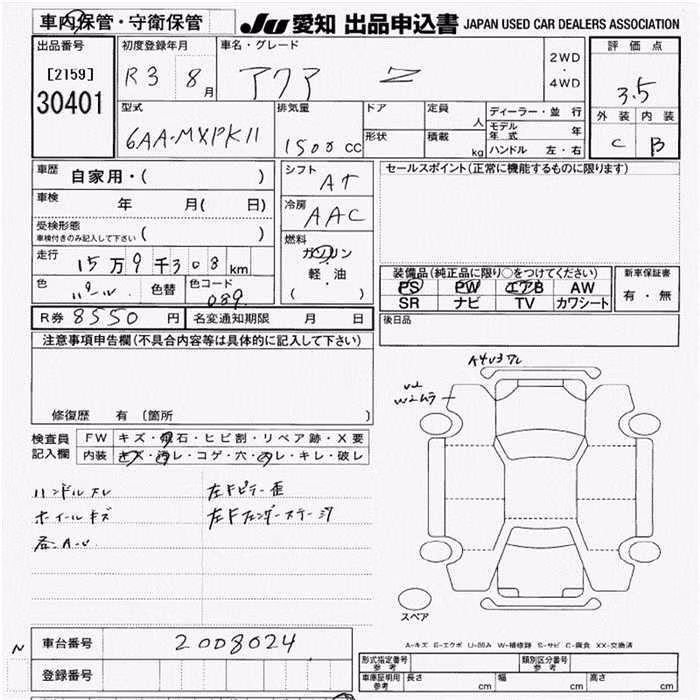 車内保管・守衛保管
JU 愛知 出品申込書 JAPAN USED CAR DEALERS ASSOCIATION
出品番号
[2159]
30401
初度登録年月
R3 8月
車名・グレード
アクア Z
2WD
・
4WD
評価点
3.5
外装 内装
C B
型式
6AA-MXPK11
排気量
1500 CC
ドア
形状
定員 人
積載 kg
ディーラー・並行
モデル年式 年
ハンドル 左・右
車歴
自家用・( )
車検 年 月( 日)
受検形態
車検付きのみ記入して下さい ( )
走行 15万9千308km
色 パール 色替 色コード 089
シフト AT
冷房 AAC
燃料
ガソリン
・
軽・油
( )
セールスポイント(正常に機能するものに限ります)
装備品(純正品に限り○をつけてください)
PS PW エアB AW
SR ナビ TV カワシート
新車保証書
有・無
R券 8550 円 名変通知期限 月 日
後日品
注意事項申告欄(不具合内容等は具体的に記入して下さい)
修復歴 有 〔箇所 〕
検査員記入欄
FW キズ・飛石・ヒビ割・リペア跡・X要
内装 キズ・汚レ・コゲ・穴・スレ・キレ・破レ
ハンドルスレ
ホイールキズ
各A・U
左Fピラー歪
左Fフェンダーステージ
A4U3
スペア
A-キズ E-エクボ U-凹み W-補修跡 S-サビ C-腐食 XX-交換済
N
車台番号 2008024
登録番号
形式指定番号
参考
類別区分番号
参考
車庫証明用
参考
長さ cm 幅 cm 高さ cm